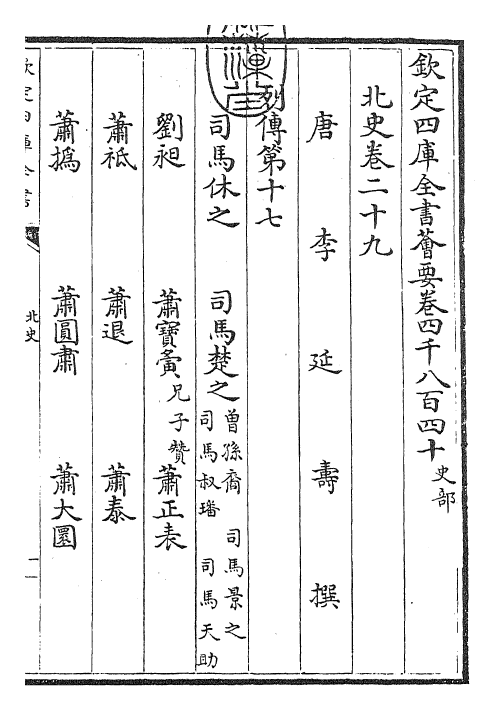 欽定四庫全書薈要卷四千八百四十史部
北史卷二十九
唐李延壽撰
列傳第十七
司馬休之 司馬楚之曾孫裔 司馬景之 司馬叔璠 司馬天助
劉昶 蕭寶夤兄子贊 蕭正表
蕭祗 蕭退 蕭泰
蕭撝 蕭圓肅 蕭大圜
欽定四庫全書
北史
一